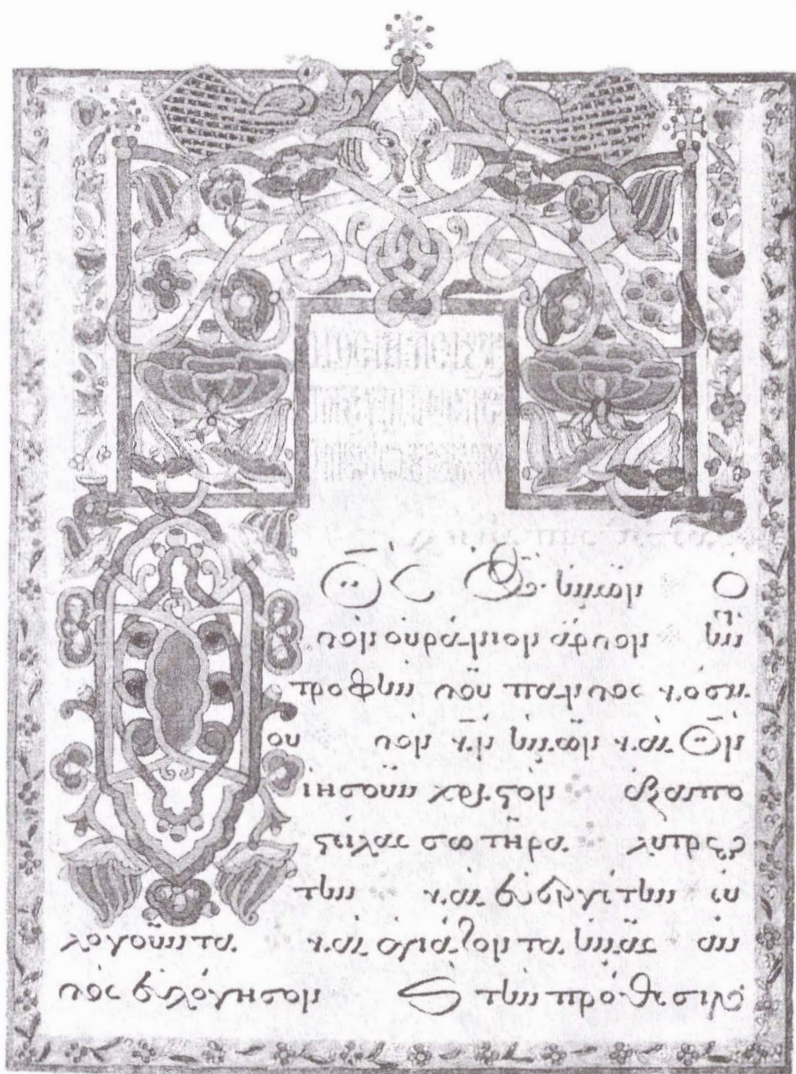 Ὁ Θ̅ς ὁ Θ̅ς ἡμῶν ὁ
τὸν οὐράνιον ἄρτον τὴν
τροφὴν τοῦ παντὸς κόσμ
ου τὸν κ̅ν ἡμῶν καὶ Θ̅ν
ἰησοῦν χριστὸν ἐξαπο
στείλας σωτῆρα λυτρω
τὴν καὶ εὐεργέτην εὐ
λογοῦντα καὶ ἁγιάζοντα ἡμᾶς αὐ
τὸς εὐλόγησον τὴν πρόθεσιν